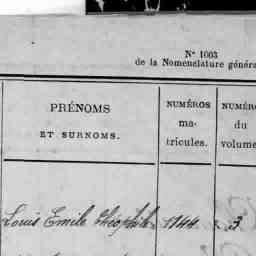 Nº 1003
de la Nomenclature généra
PRÉNOMS
ET SURNOMS.
NUMÉROS
ma-
tricules.
NUMÉR
du
volume
Louis Emile Théophile 1144 3